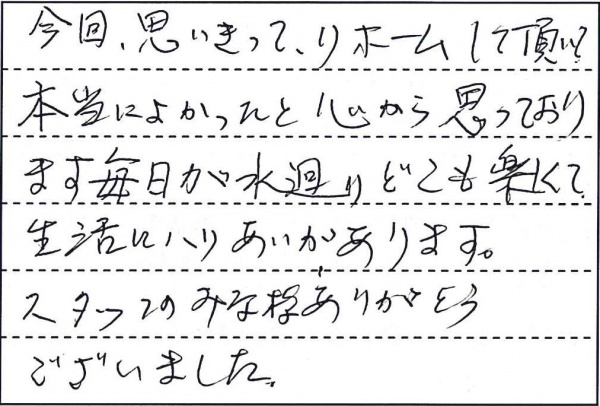 今回、思いきって、リホームして頂いて
本当によかったと心から思っており
ます毎日が水廻りどこも楽しくて
生活にハリあいがあります。
スタッフのみな様ありがとう
ございました。